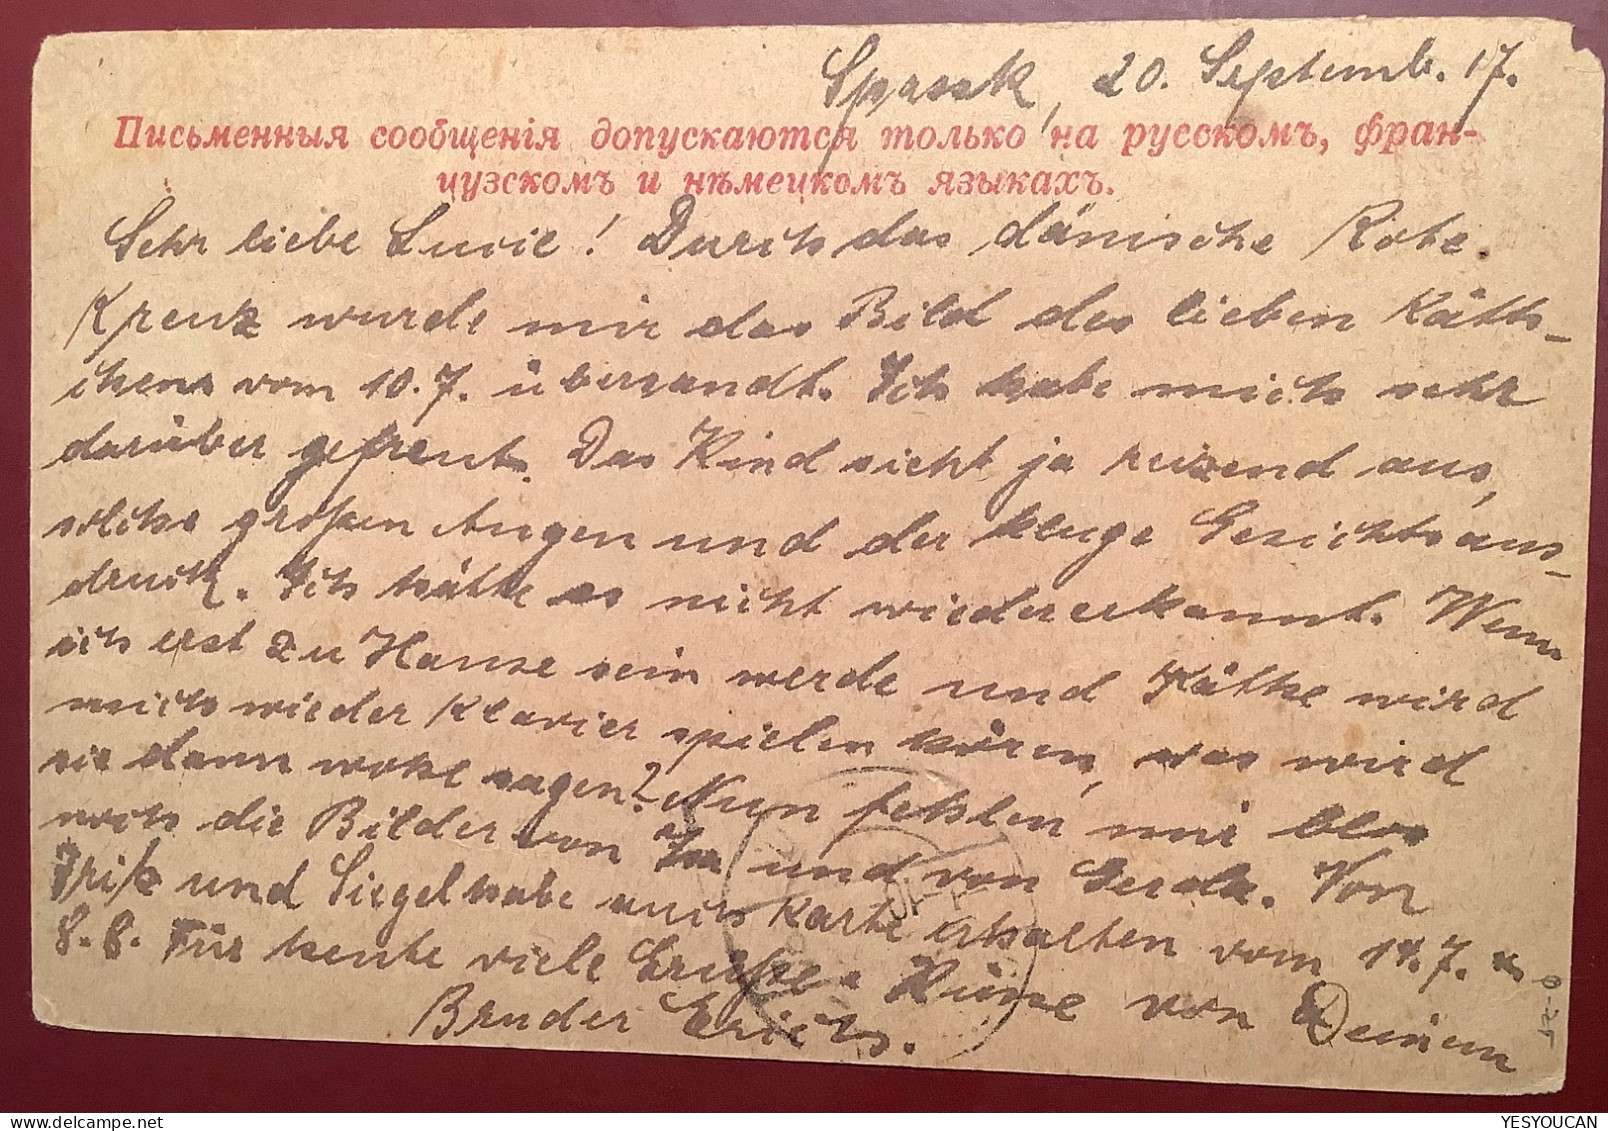 Spassk, 20. Septemb. 17.
Письменныя сообщенія допускаются только на русскомъ, фран-
цузскомъ и нѣмецкомъ языкахъ.
Sehr liebe Lucie! Durch das dänische Rote.
Kreuz wurde mir das Bild des lieben Käth-
chens vom 10.7. übersandt. Ich habe mich sehr
darüber gefreut. Das Kind sieht ja reizend aus,
solche großen Augen und der kluge Gesichtsaus-
druck. Ich hätte es nicht wiedererkannt. Wenn
ich erst zu Hause sein werde und Käthe wird
mich wieder Klavier spielen hören, was wird
sie dann wohl sagen? Nun fehlen mir blos
noch die Bilder von und von Gerda. Von
Fritz und Siegel habe auch Karte erhalten vom 14.7. u
8.8. Für heute viele Grüße u von Deinem
Bruder Erich.
YESYOUCAN